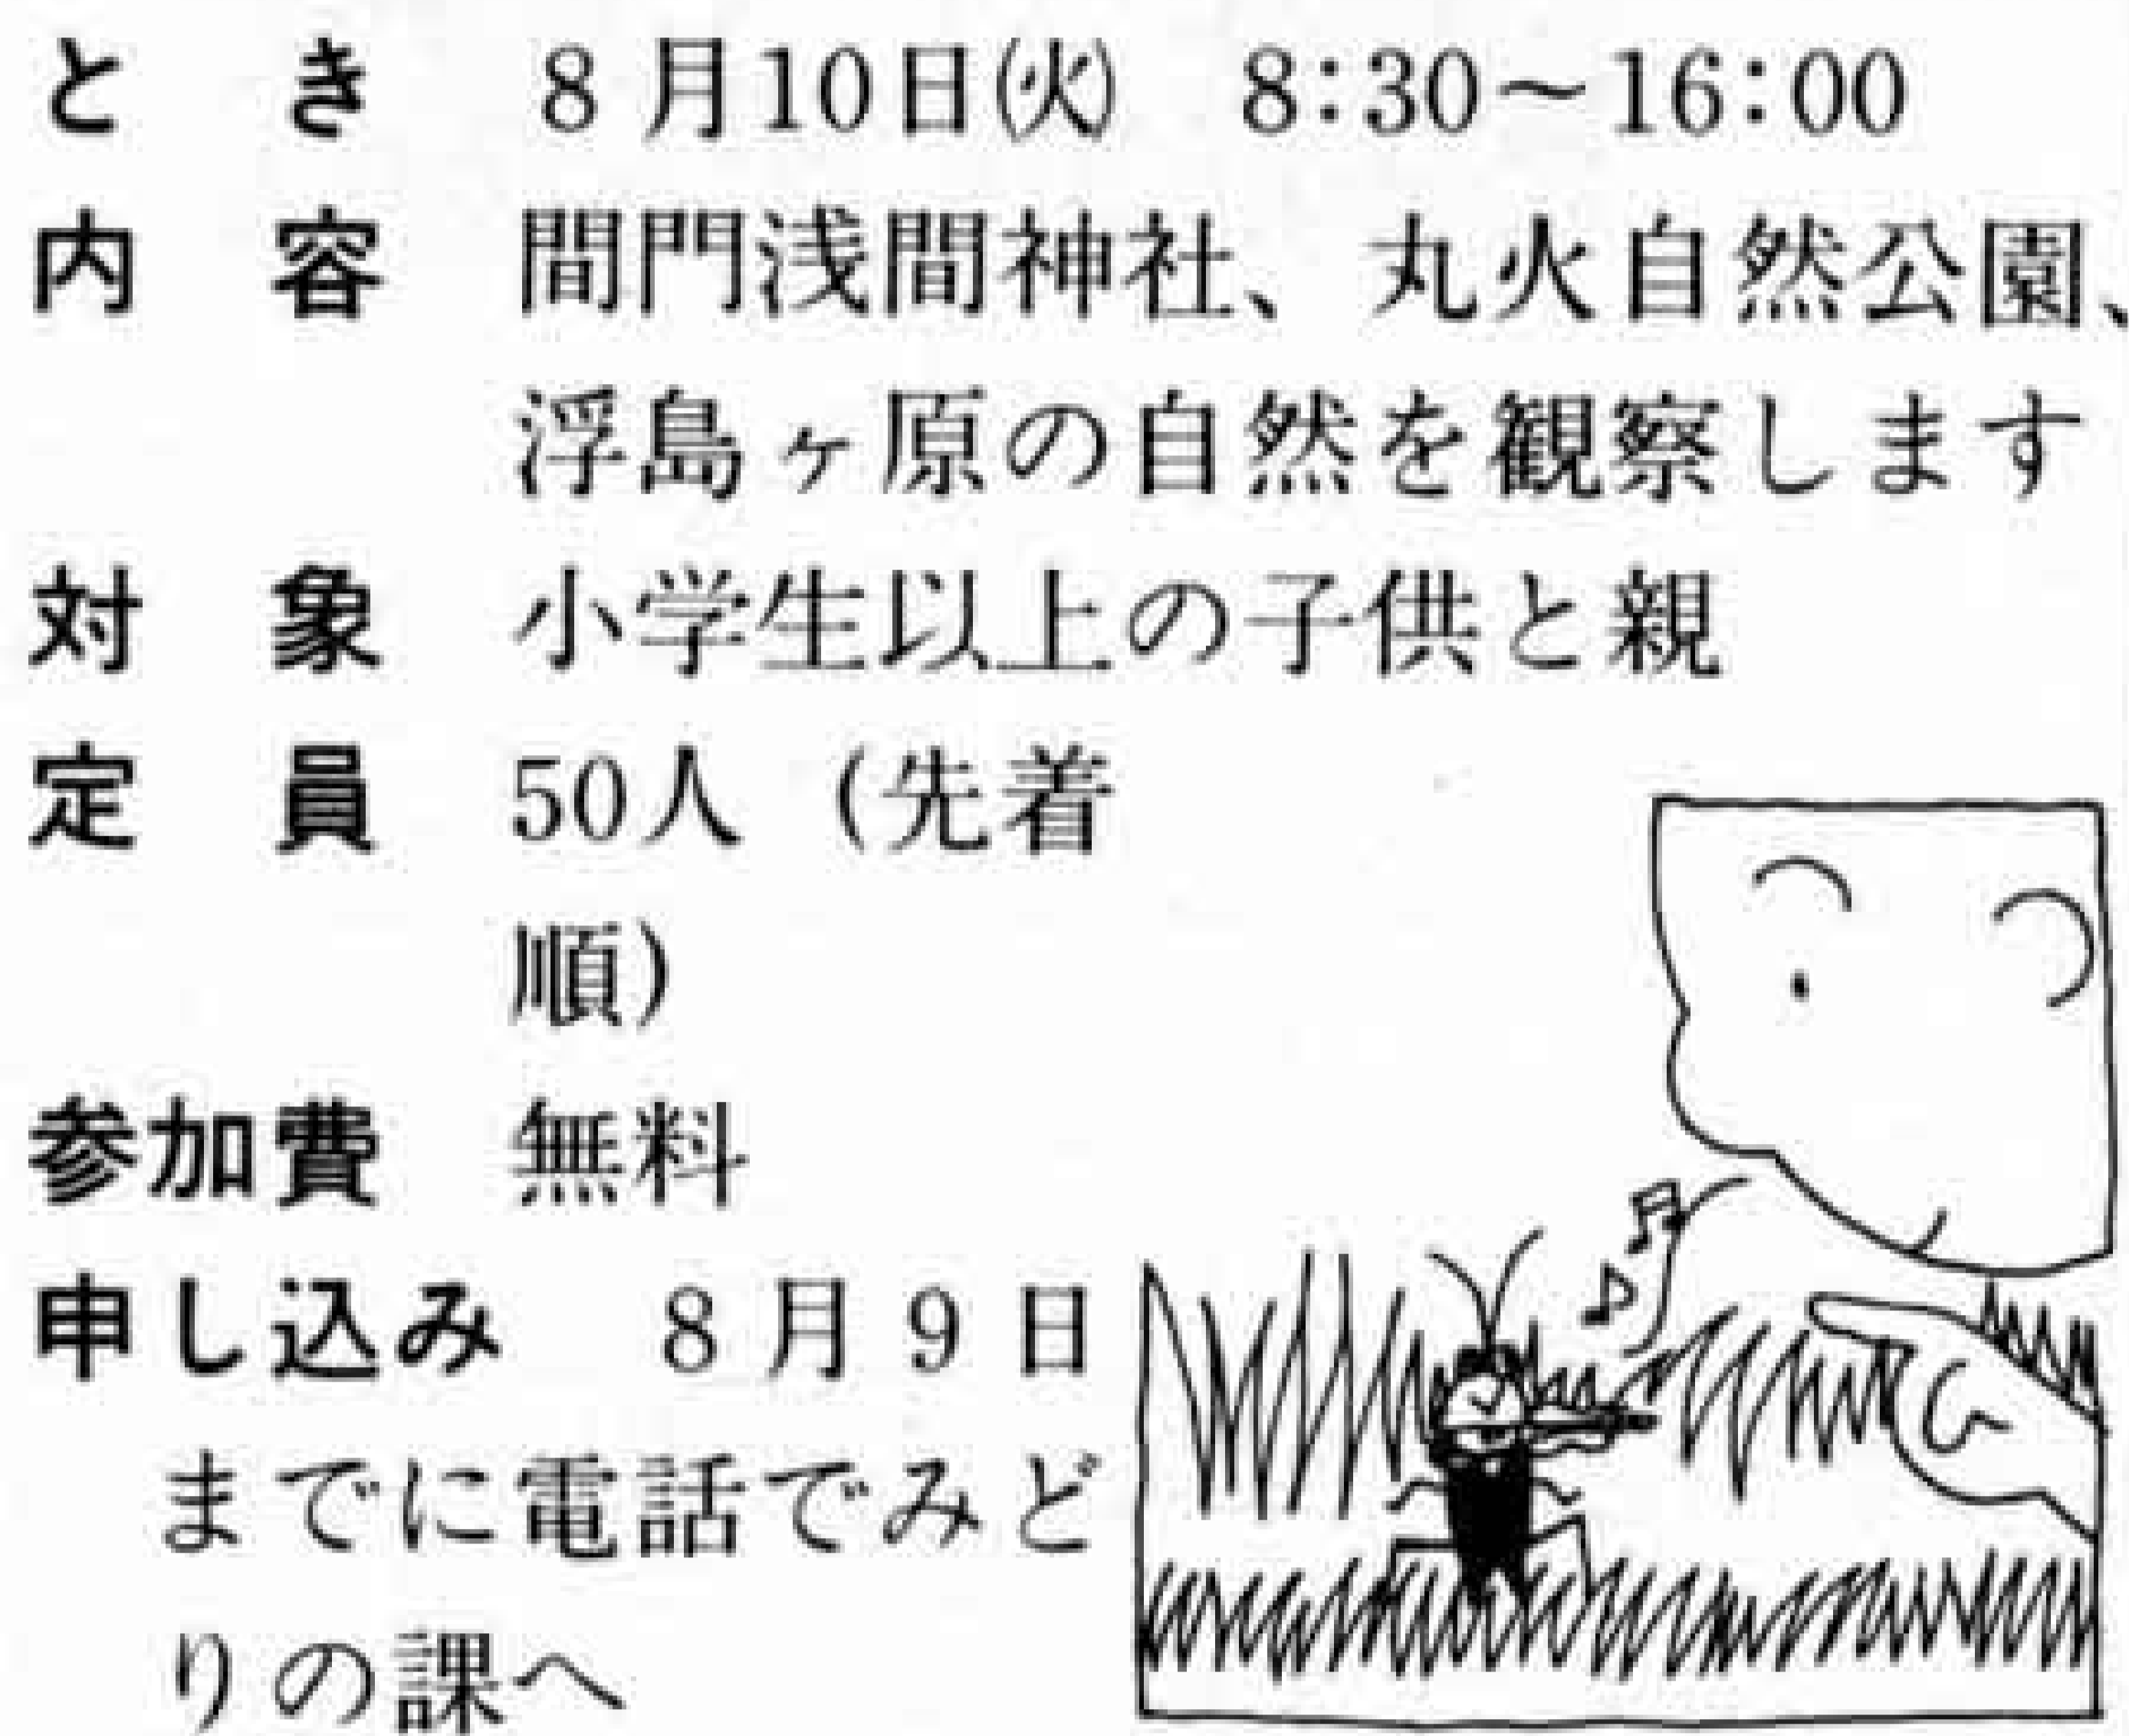 とき 8月10日(火) 8:30〜16:00
内容 間門浅間神社、丸火自然公園、
浮島ヶ原の自然を観察します
対象 小学生以上の子供と親
定員 50人（先着
順）
参加費 無料
申し込み 8月9日
までに電話でみど
りの課へ